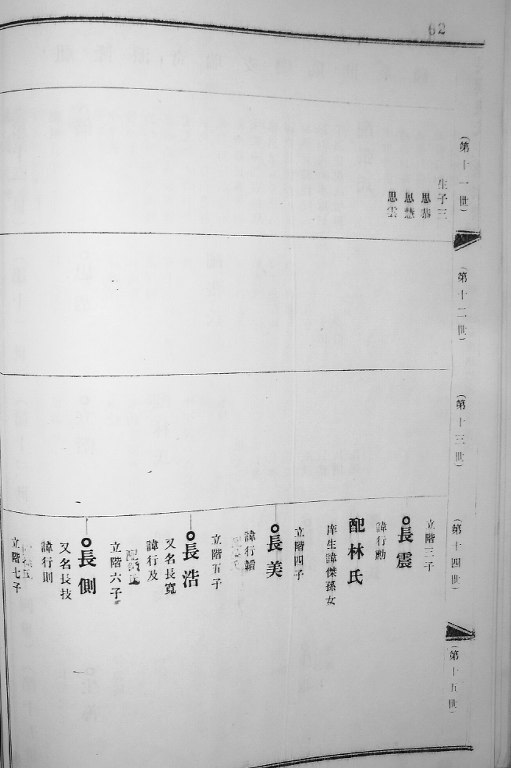 62
(第十一世)
生子三
思恭
思慧
思雲
(第十二世)
(第十三世)
(第十四世)
立階三子
長震
諱行動
配林氏
庠生諱傑孫女
立階四子
長美
諱行韜
立階五子
長浩
又名長寬
諱行及
立階六子
長側
又名長技
諱行則
立階七子
(第十五世)